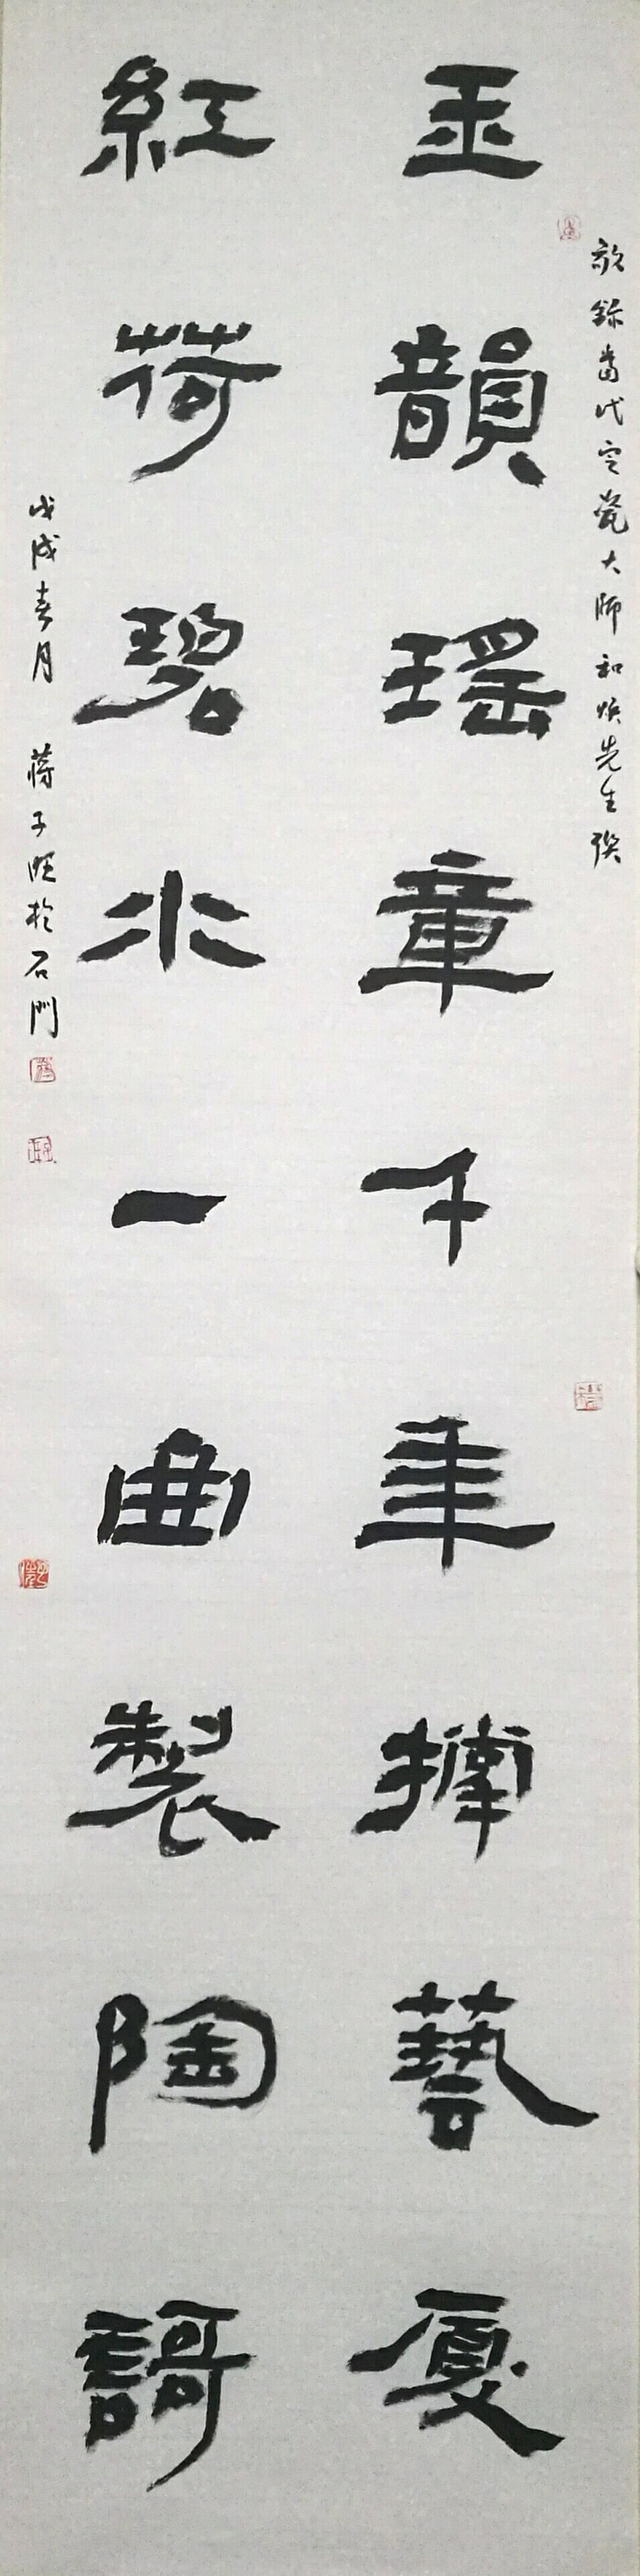 敬録當代定瓷大師和焕先生聯
玉韻瑶章千年擁藝厦
紅荷碧水一曲製陶謌
戊戌春月 蒋子旺於石門